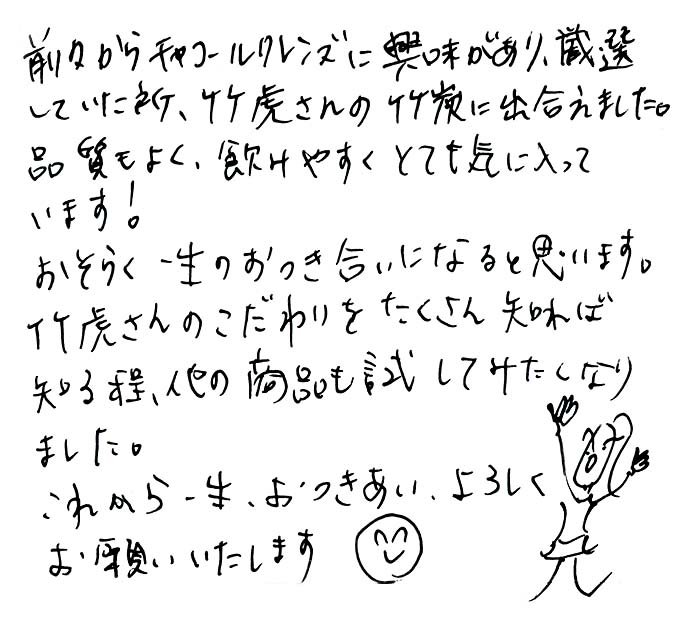 前々からチャコールクレンズに興味があり、厳選
していた所、竹虎さんの竹炭に出合えました。
品質もよく、飲みやすくとても気に入って
います!
おそらく一生のおつき合いになると思います。
竹虎さんのこだわりをたくさん知れば
知る程、他の商品も試してみたくなり
ました。
これから一生、おつきあい、よろしく
お願いいたします